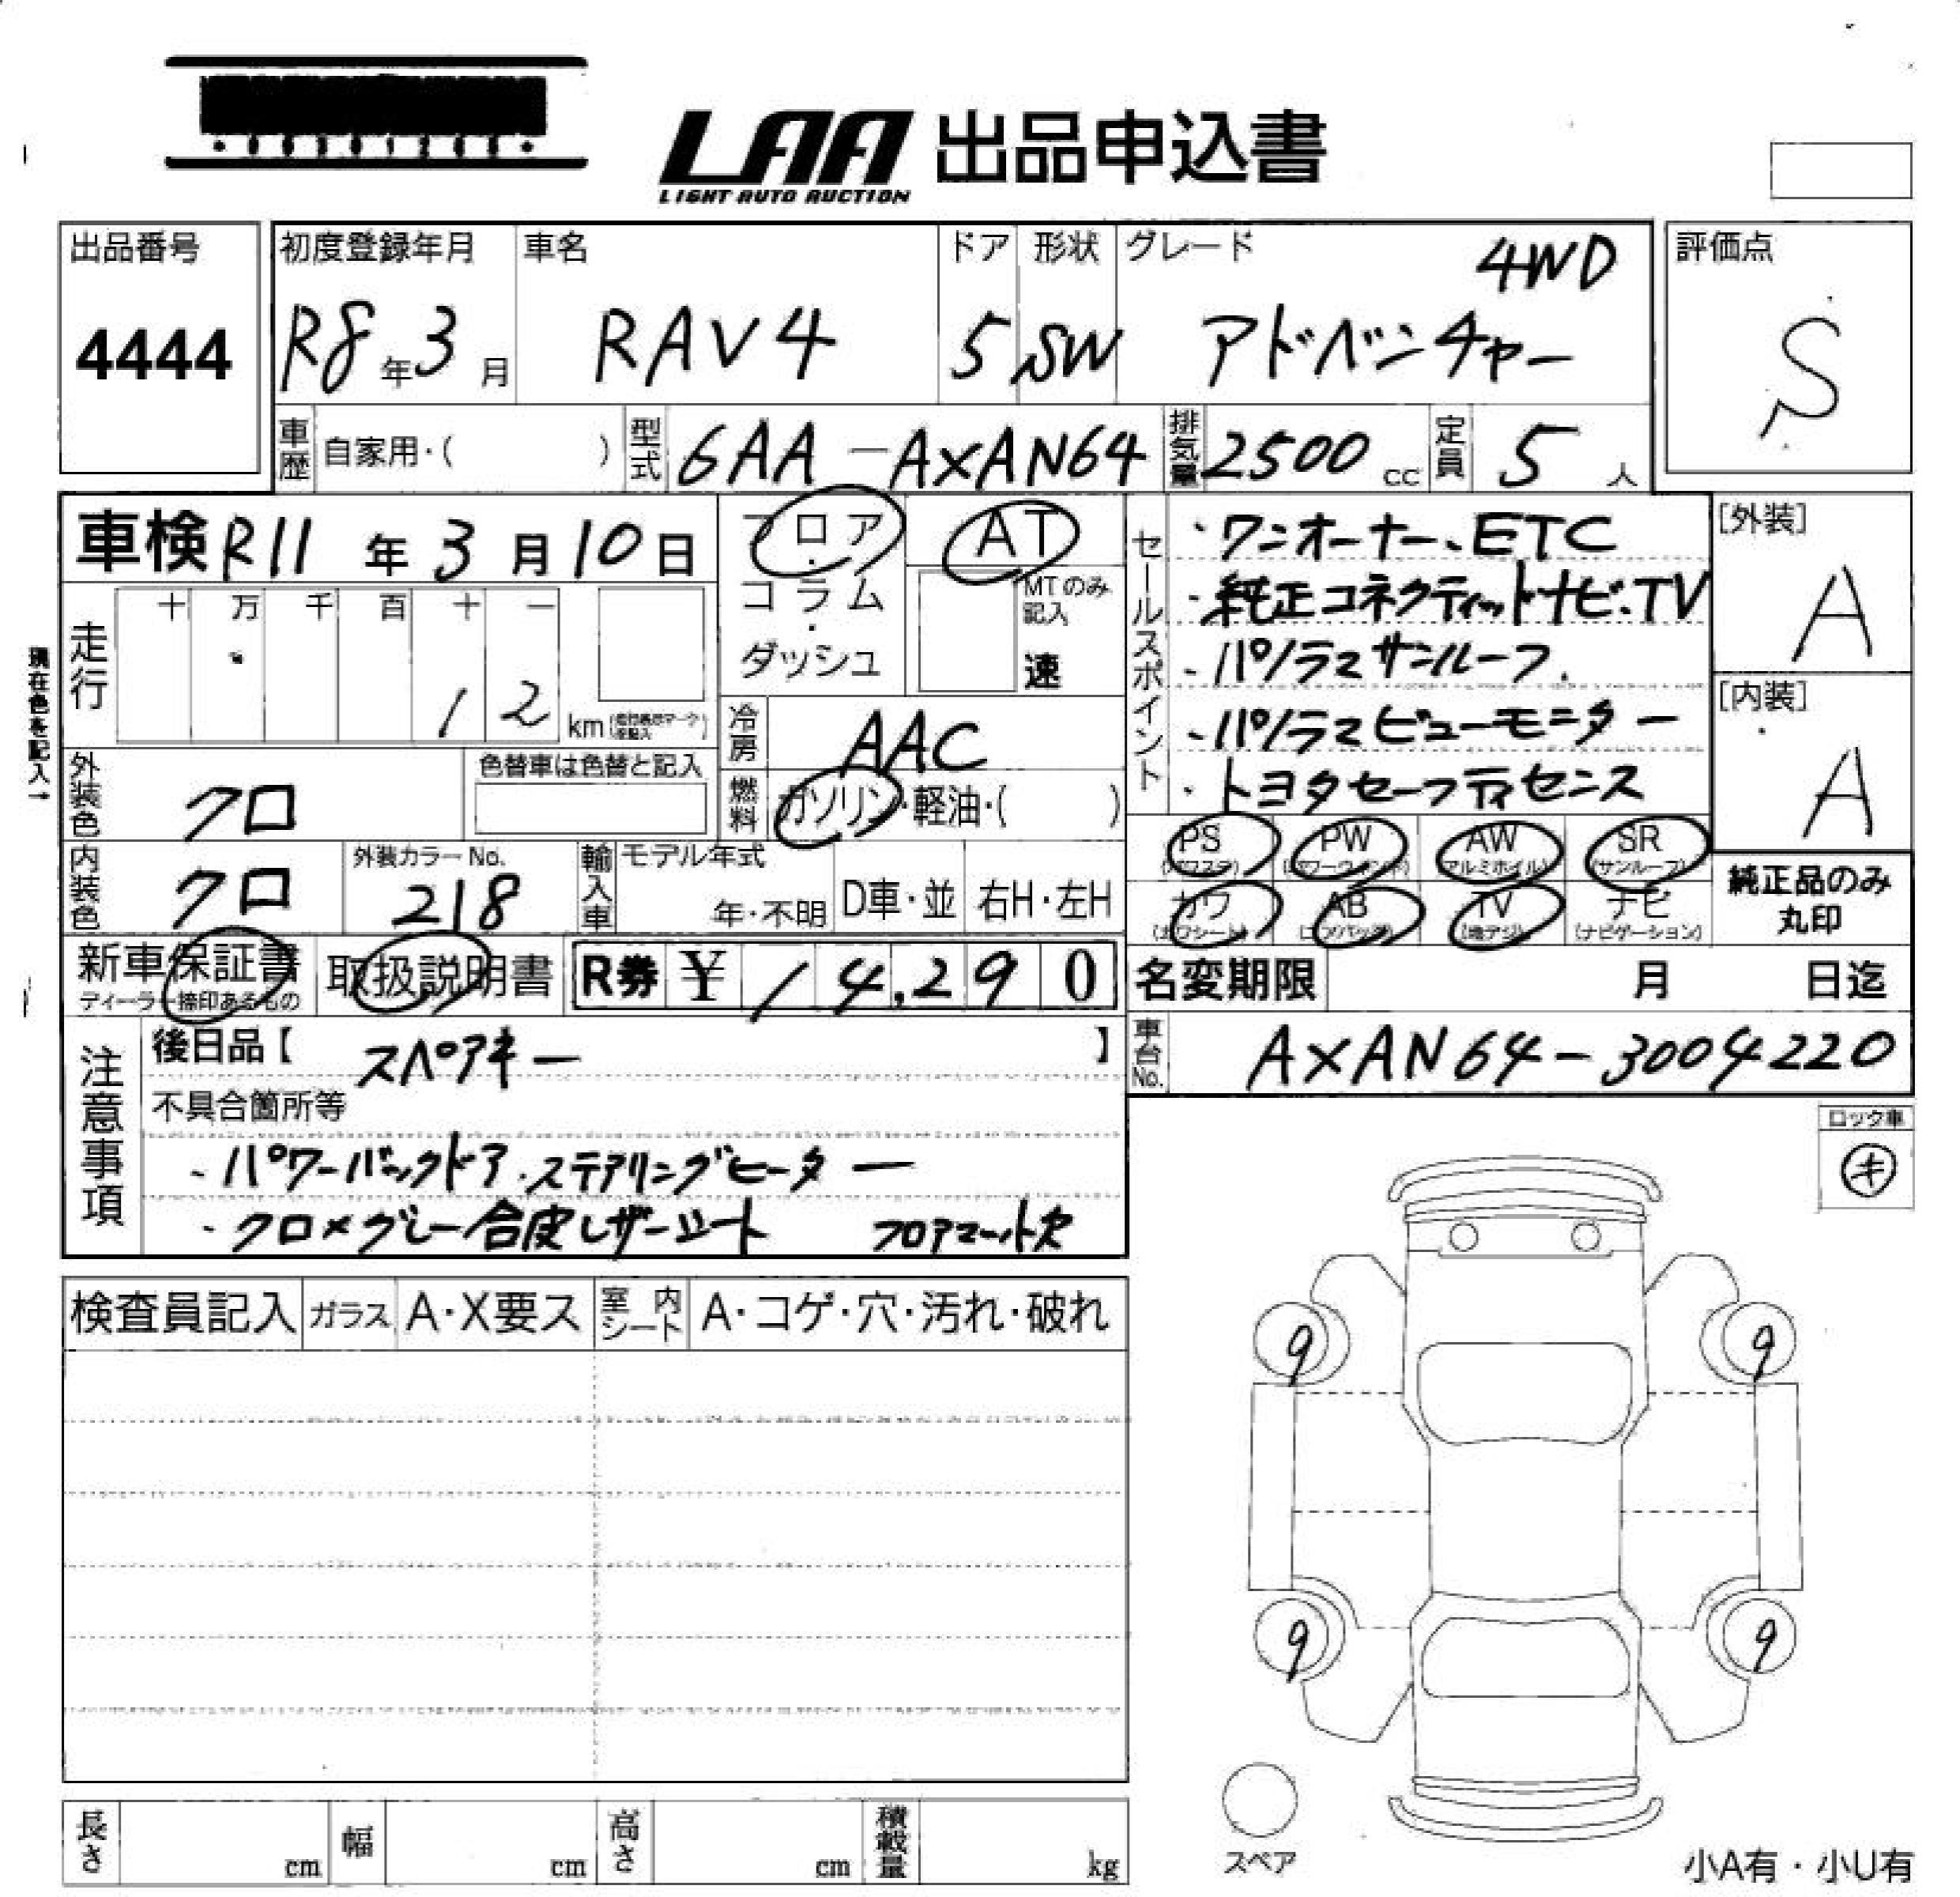 LAA 出品申込書
LIGHT AUTO AUCTION
出品番号
4444
初度登録年月
R8年3月
車名
RAV4
ドア
5
形状
SW
グレード
4WD
アドベンチャー
評価点
S
車歴 自家用・( )
型式 6AA-AXAN64
排気量 2500 cc
定員 5 人
車検 R11年3月10日
フロア・コラム・ダッシュ
AT
MTのみ記入
速
走行
十 万 千 百 十 一
12 km
現在色を記入→
冷房 AAC
燃料 ガソリン・軽油・( )
外装色 クロ
色替車は色替と記入
内装色 クロ
外装カラーNo.
218
輸入車 モデル年式
年・不明
D車・並
右H・左H
セールスポイント
・ワンオーナー、ETC
・純正コネクティッドナビ・TV
・パノラマサンルーフ
・パノラマビューモニター
・トヨタセーフティセンス
[外装]
A
[内装]
A
PS (パワステ)
PW (パワーウインド)
AW (アルミホイル)
SR (サンルーフ)
カワ (カワシート)
AB (エアバッグ)
TV (地デジ)
ナビ (ナビゲーション)
純正品のみ
丸印
新車保証書
ディーラー捺印あるもの
取扱説明書
R券 ¥ 14,290
名変期限 月 日迄
車台No. AXAN64-3004220
注意事項
後日品【 スペアキー 】
不具合箇所等
・パワーバックドア・ステアリングヒーター
・クロ×グレー合皮レザーシート フロアマット欠
ロック車
キ
検査員記入
ガラス A・X要ス
室内シート A・コゲ・穴・汚れ・破れ
9
9
9
9
スペア
小A有・小U有
長さ cm
幅 cm
高さ cm
積載量 kg